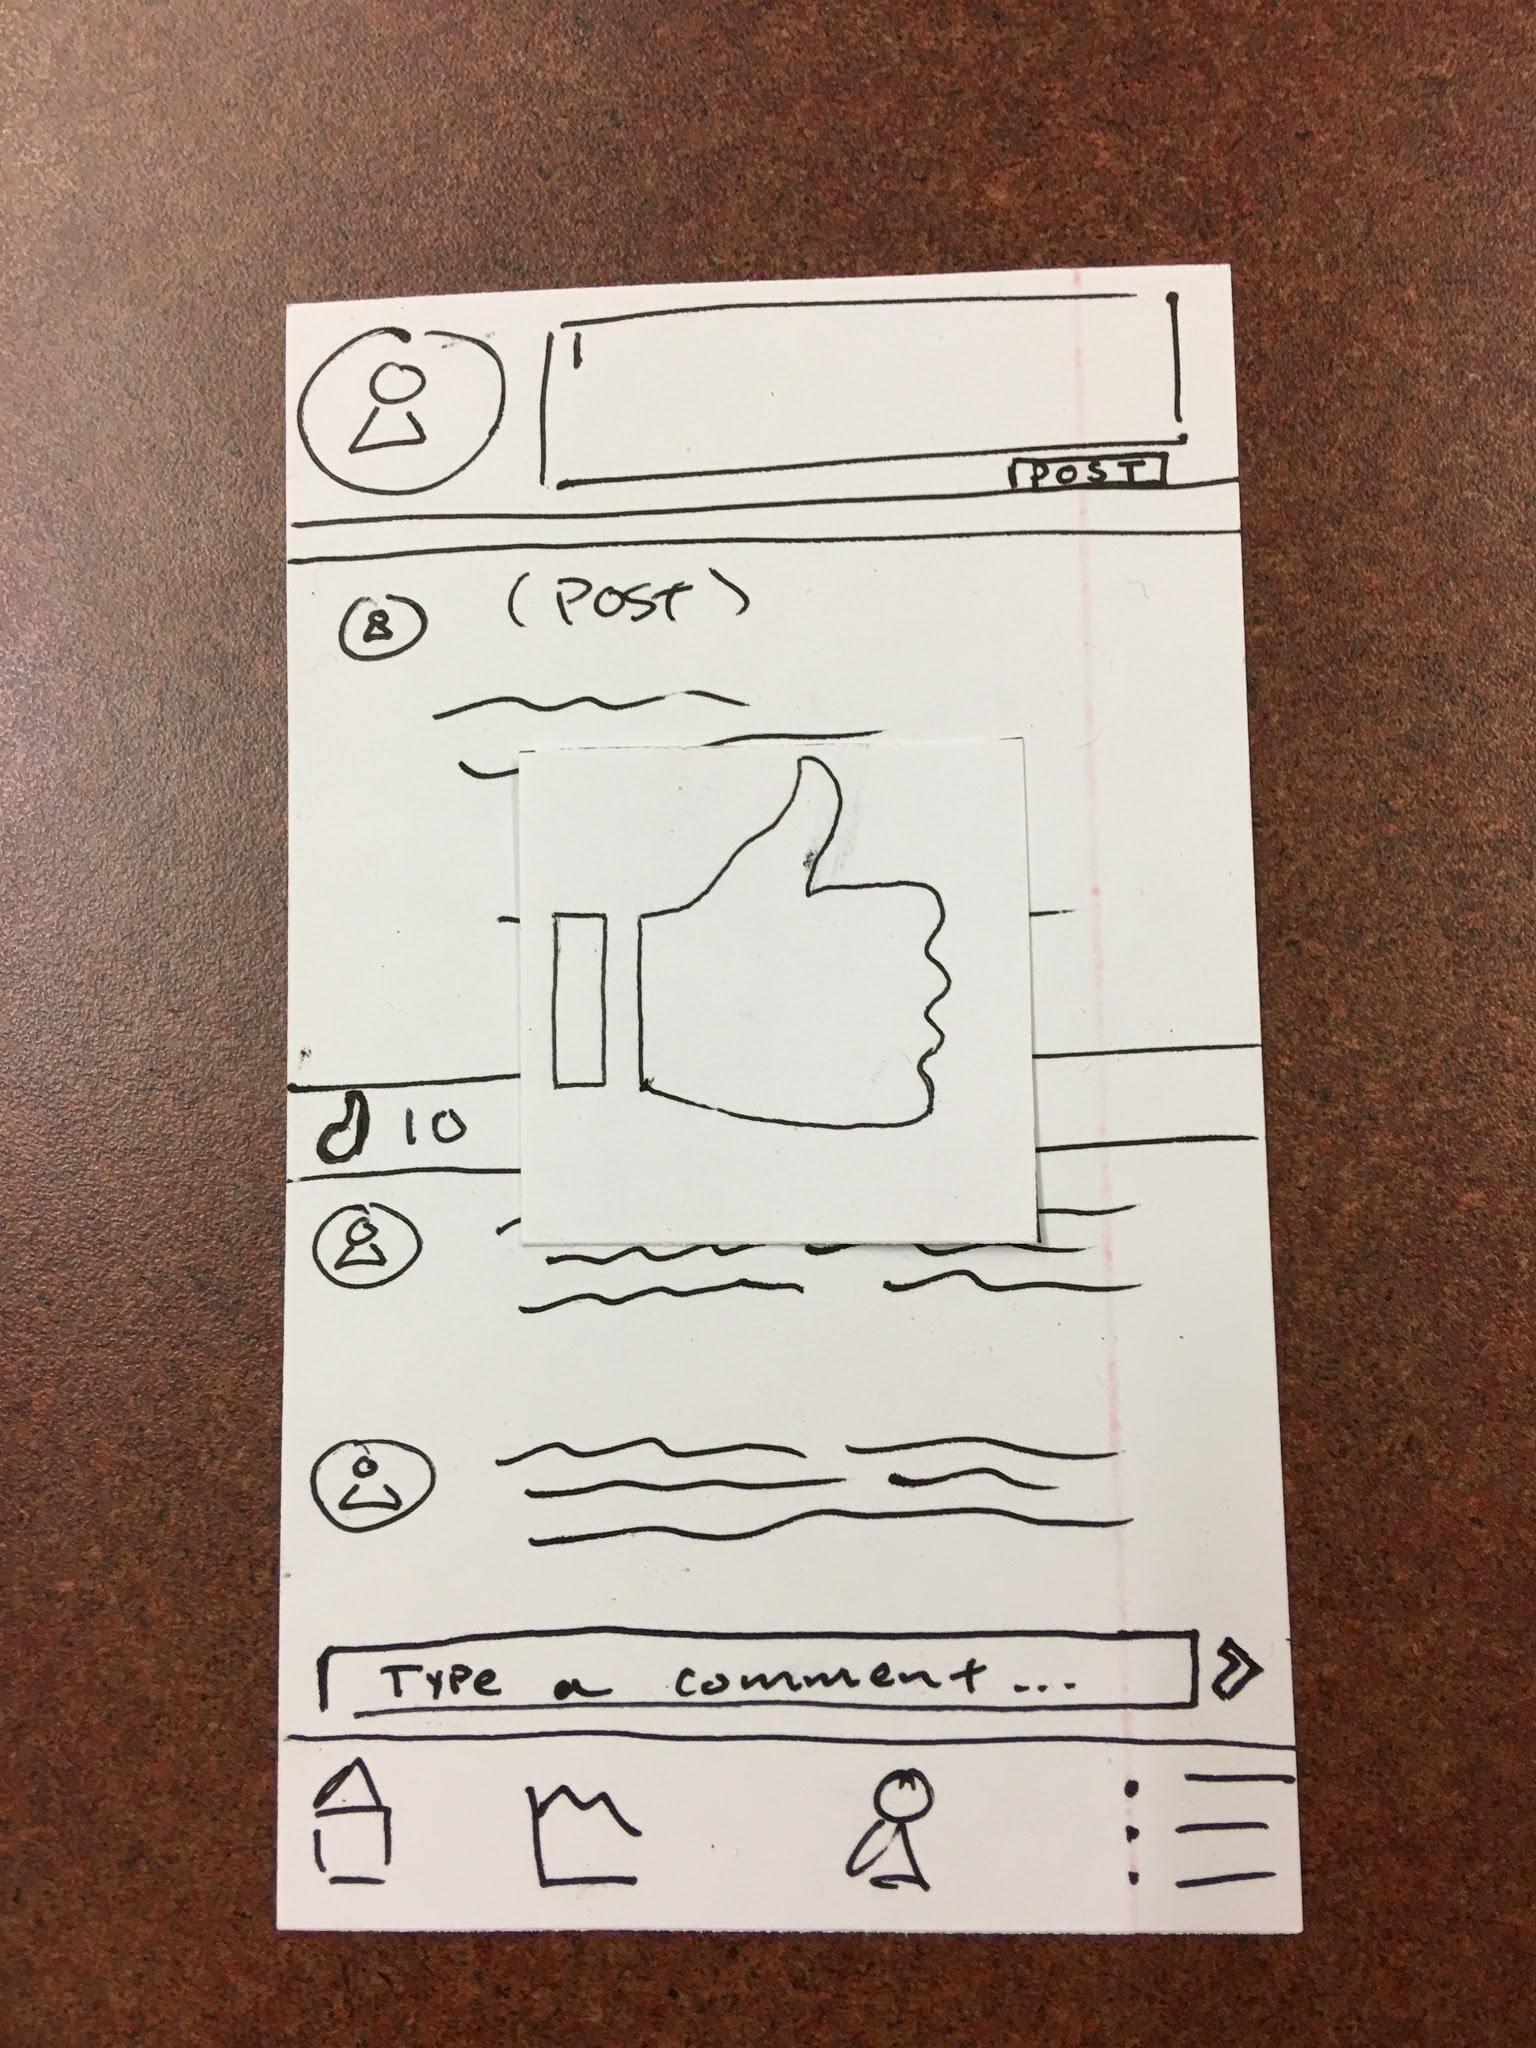 POST
(POST)
10
Type a comment...